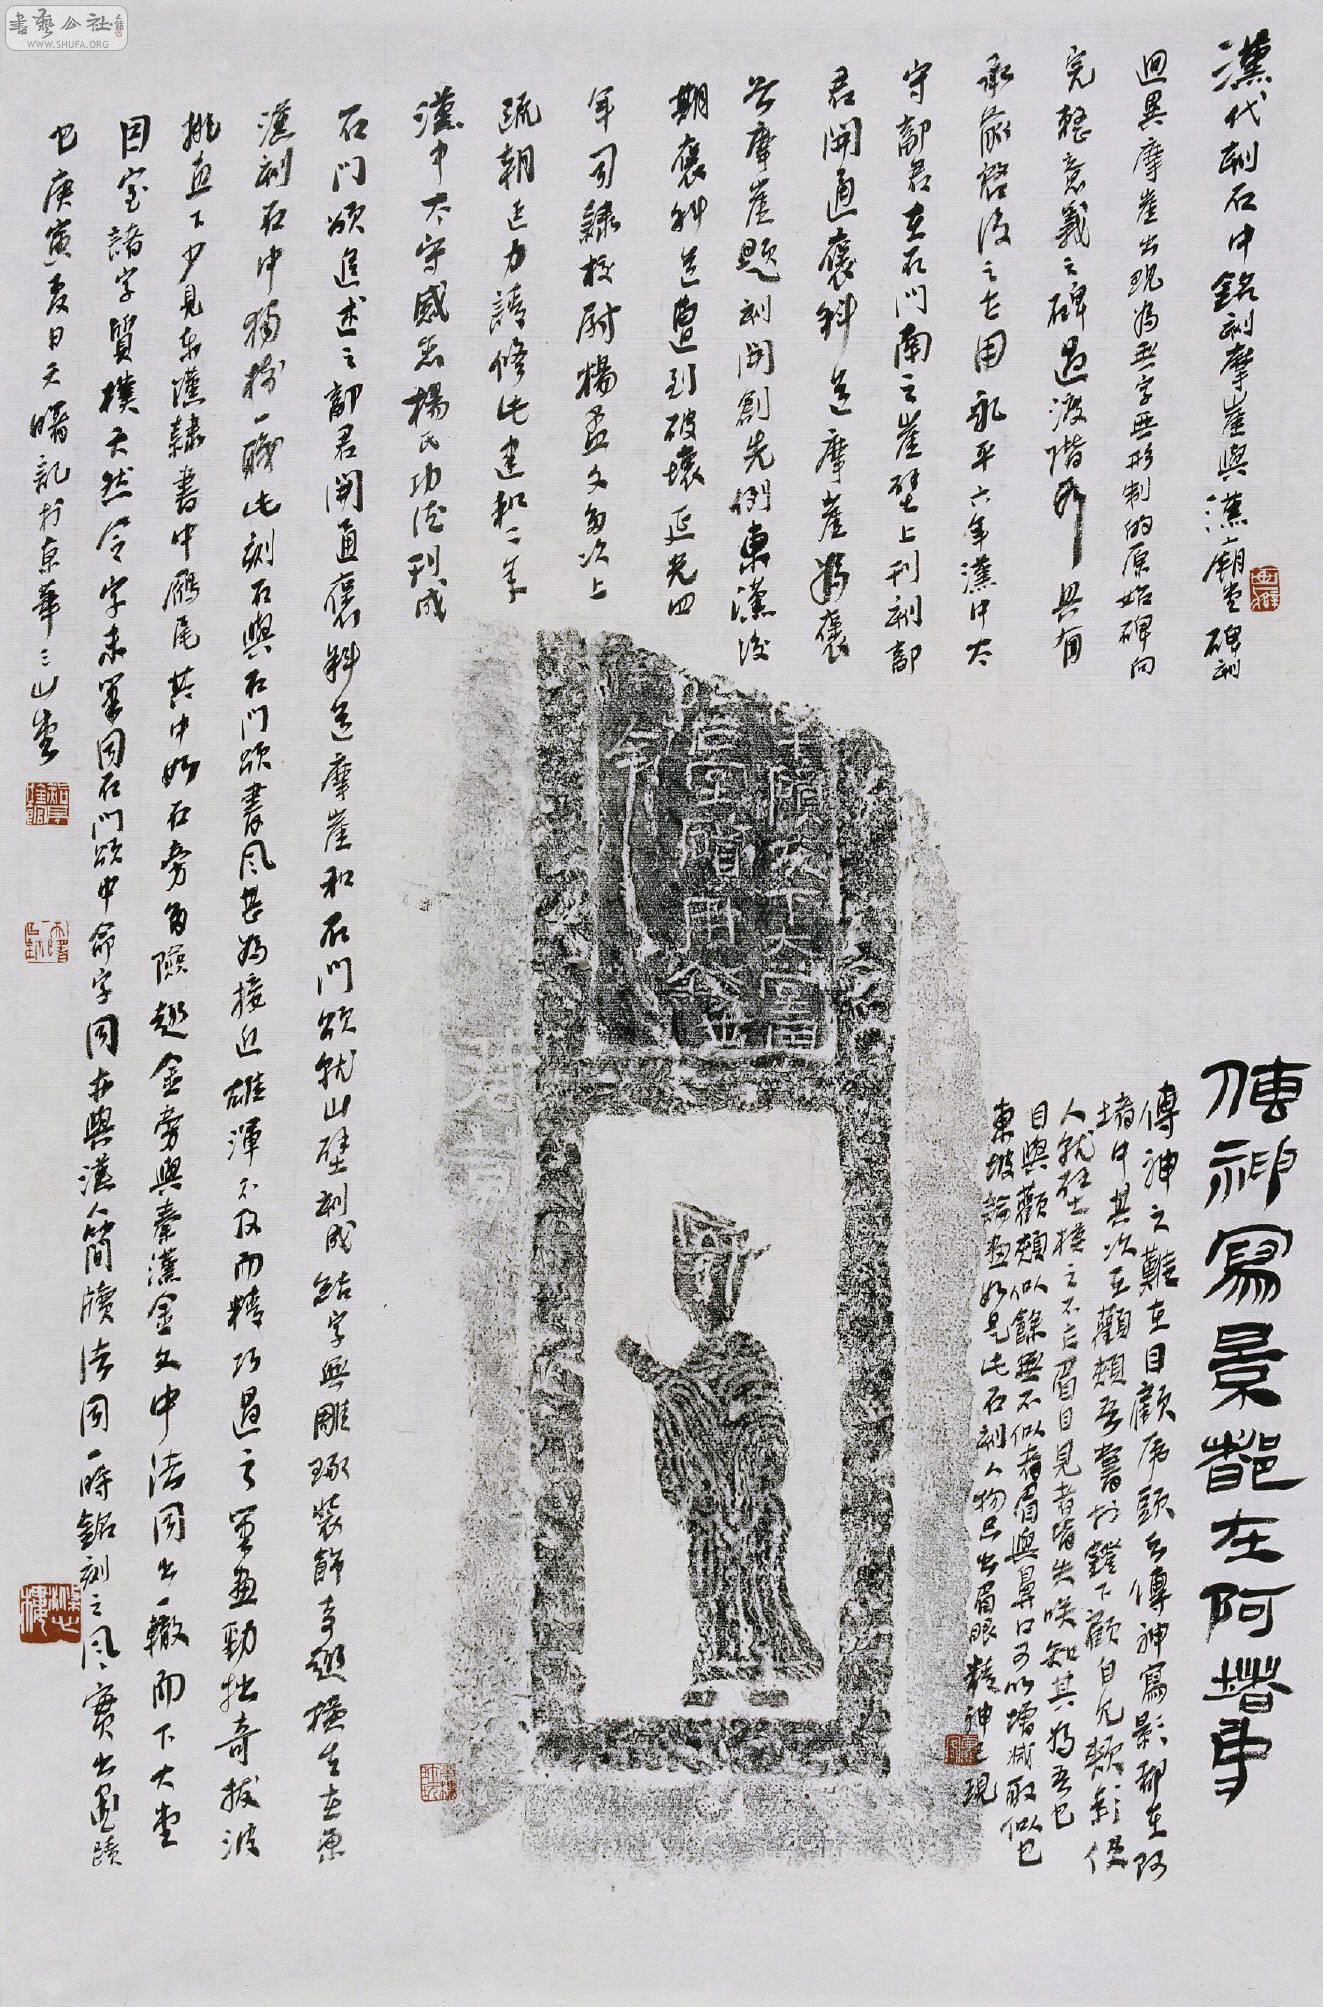 漢代刻石中銘刻摩崖與漢廟堂碑刻
迥異摩崖出現為無字無形制的原始碑向
完整意義之碑過渡階段具有
承前啓後之作用永平六年漢中太
守鄐君在石門南之崖壁上刊刻鄐
君開通褒斜道摩崖為褒
谷摩崖題刻開創先例東漢後
期褒斜道遭到破壞延光四
年司隸校尉楊孟文多次上
疏朝廷力請修此建和二年
漢中太守感念楊氏功德刊成
石門頌追述之鄐君開通褒斜道摩崖和石門頌就山壁刻成結字與雕琢裝飾奇趣橫生在東
漢刻石中獨樹一幟此刻石與石門頌書風甚為接近雄渾不及而精巧過之筆畫勁拙奇拔波
挑直下少見東漢隸書中雁尾其中如石旁多險趣金旁與秦漢金文中法同出一轍而下大堂
因室諸字質樸天然令字末筆同石門頌中命字同亦與漢人簡牘法同一時銘刻之風實出墨蹟
也庚寅夏日天曙記於京華三山堂
傳神寫景都在阿堵中
傳神之難在目顧虎頭云傳神寫影都在阿
堵中其次在顴頰吾嘗於燈下顧自見頰影使
人就壁模之不作眉目見者皆失咲知其為吾也
目與顴頰似餘無不似者眉與鼻口可以增減取似也
東坡論畫如是此石刻人物只出眉眼精神已現
書藝公社
WWW.SHUFA.ORG